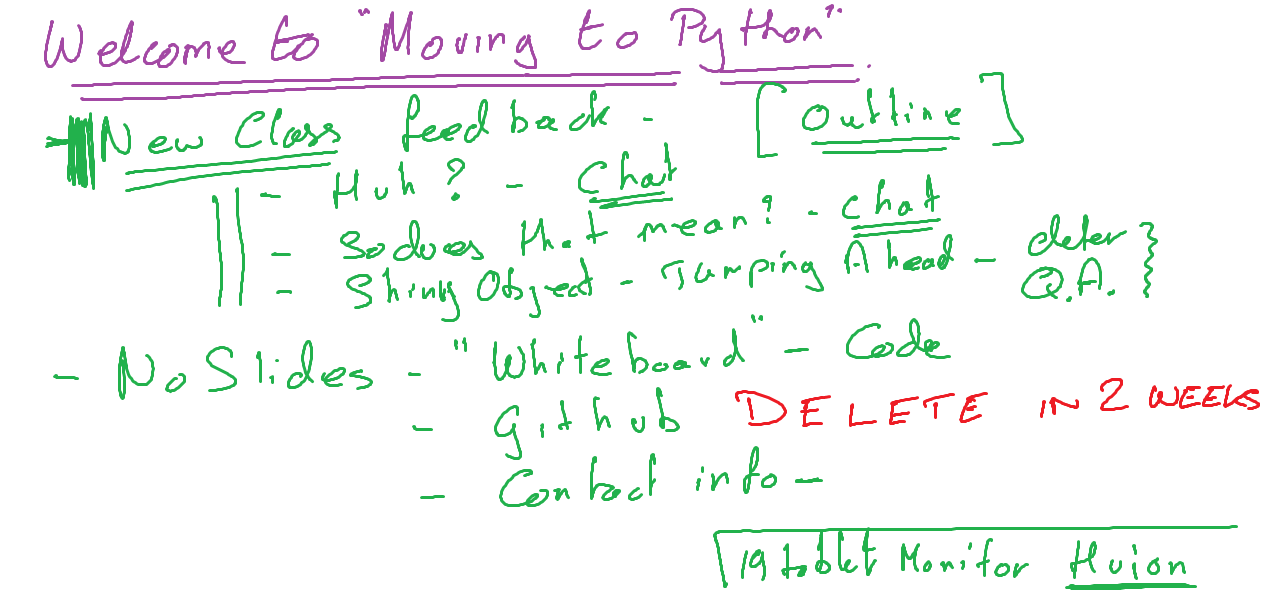 Welcome to "Moving to Python".
- New Class feedback - [Outline]
- Huh? - Chat
- So does that mean? - chat
- Shiny Object - Jumping Ahead - defer Q.A.
- No Slides - "Whiteboard" - Code
- Github DELETE IN 2 WEEKS
- Contact info -
19 tablet Monitor Huion